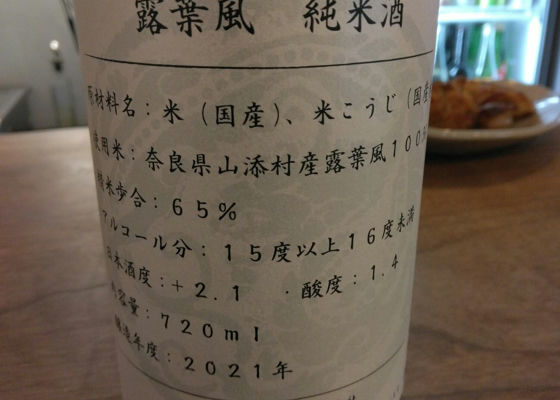 露葉風 純米酒
原材料名：米（国産）、米こうじ（国産
使用米：奈良県山添村産露葉風１００%
精米歩合：６５％
アルコール分：１５度以上１６度未満
日本酒度：＋２.１ ・酸度：１.４
内容量：７２０ｍｌ
醸造年度：２０２１年